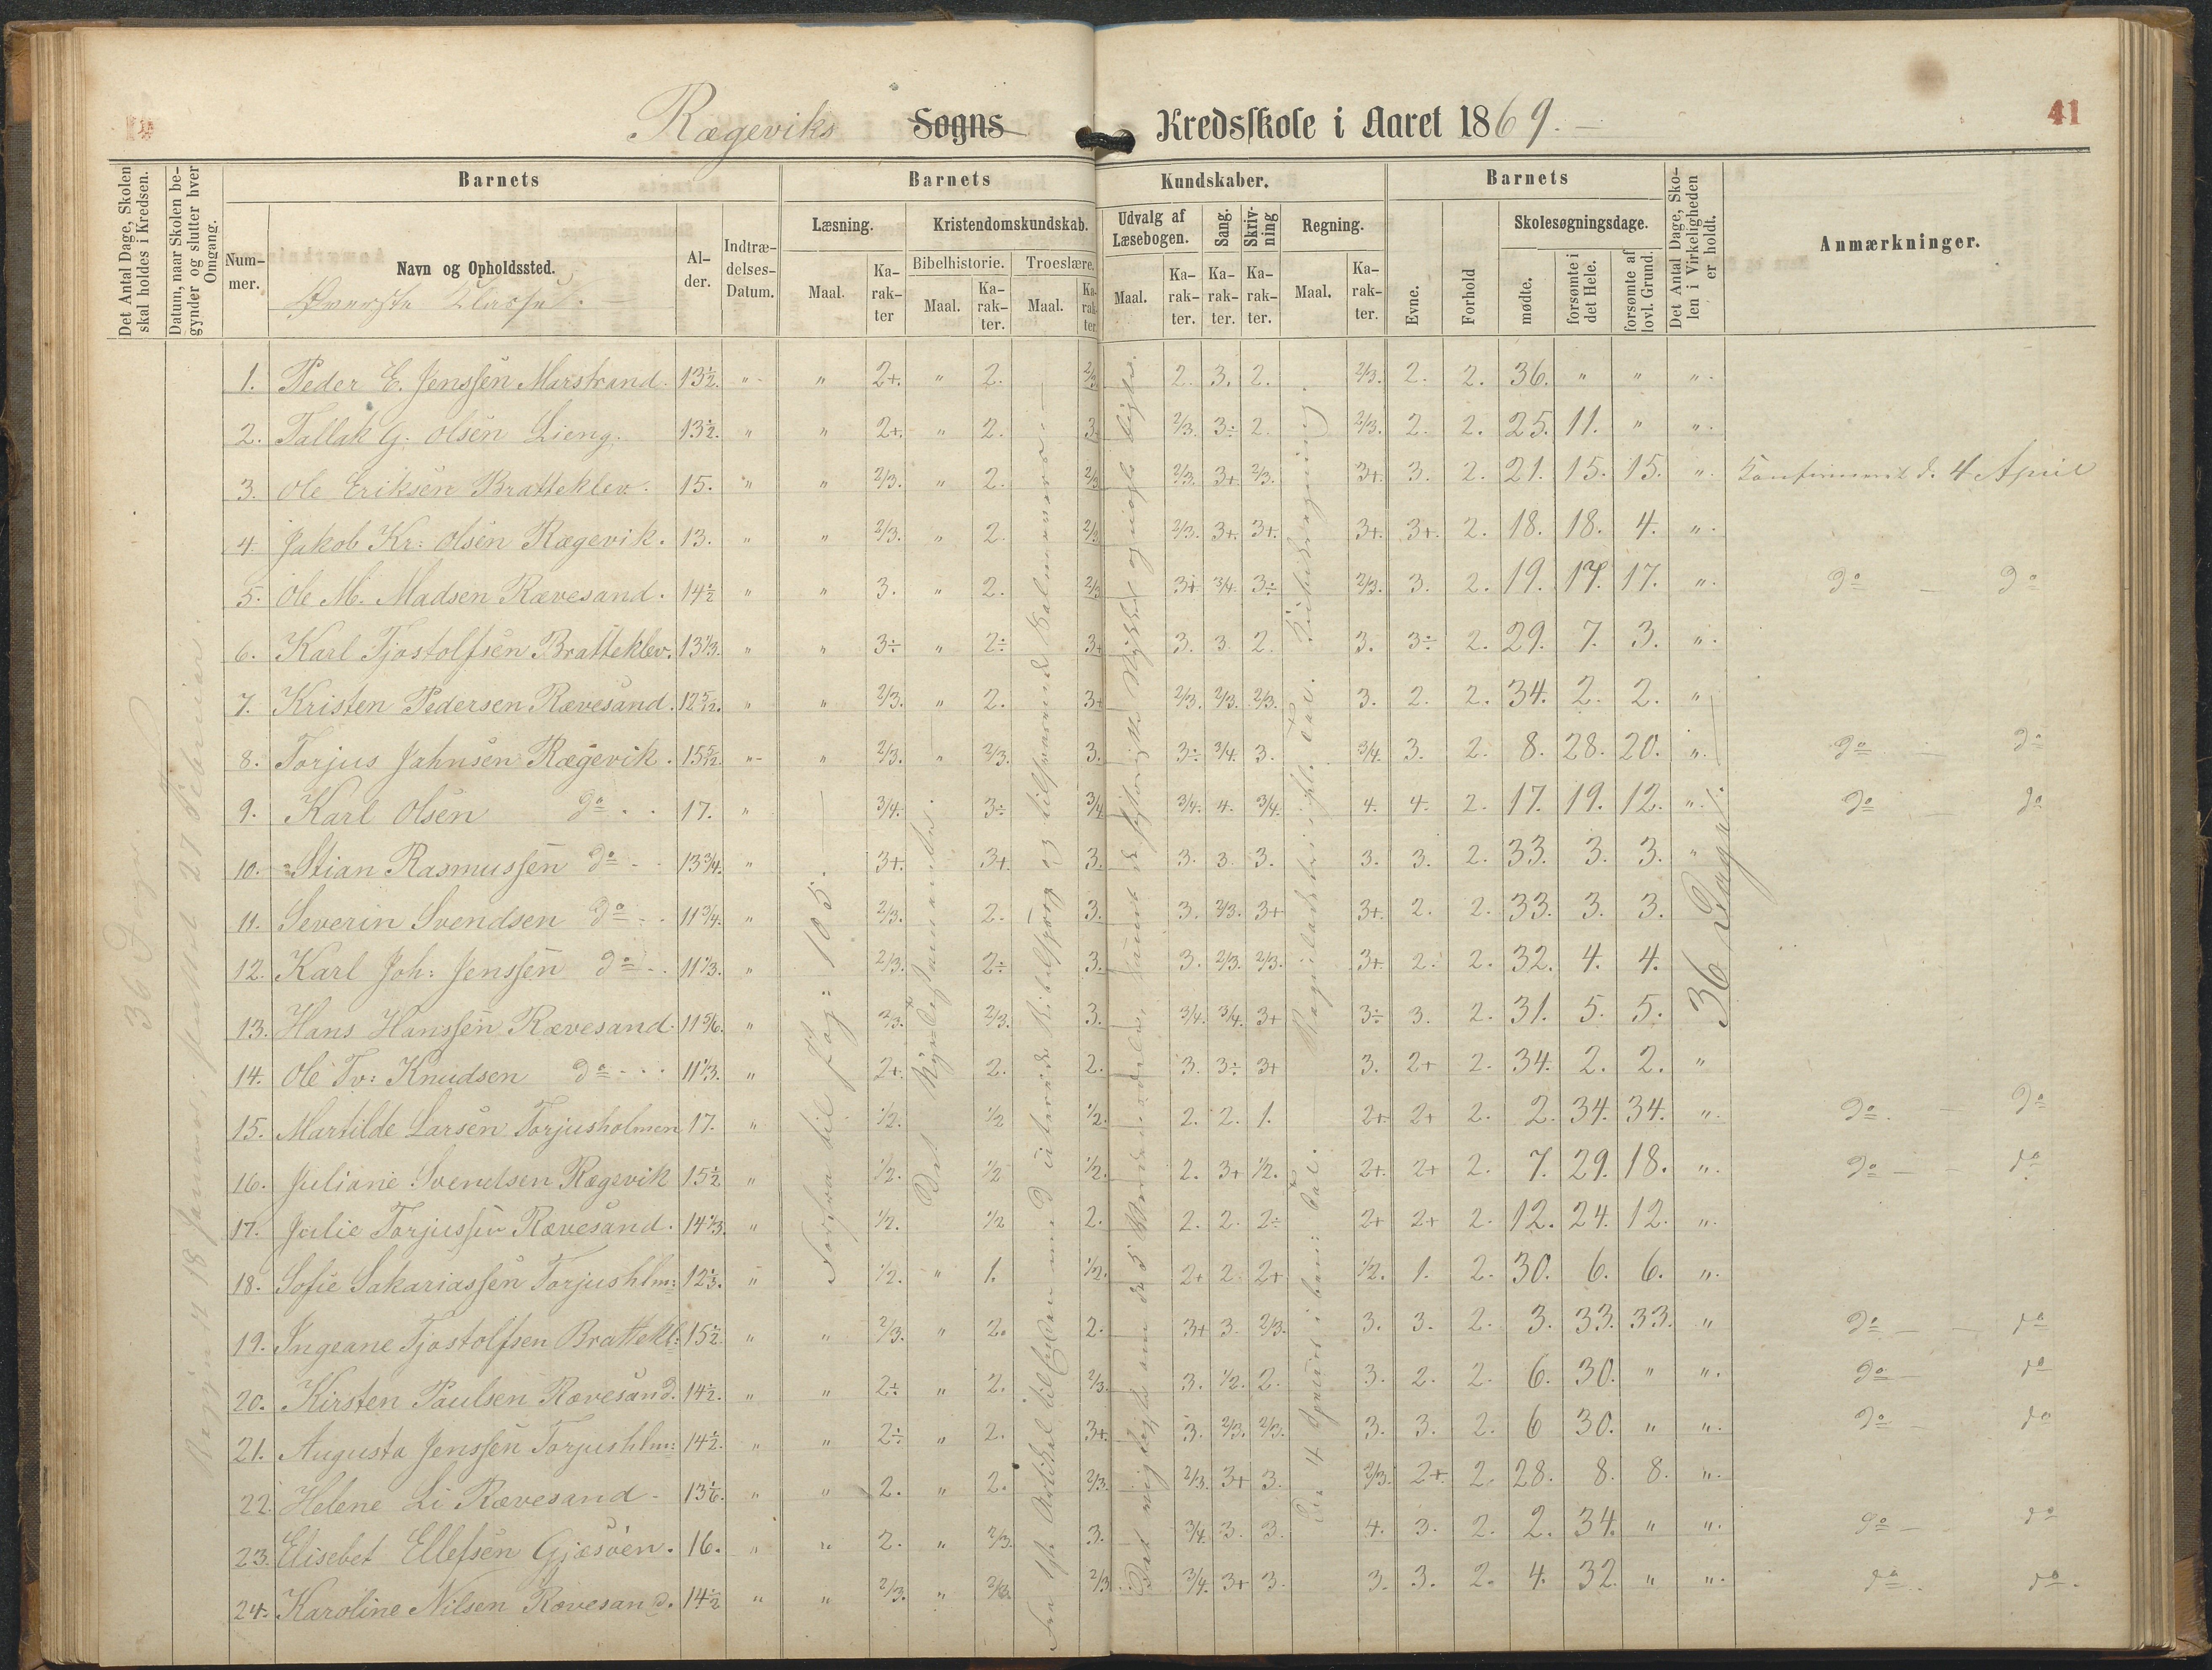 Rægeviks Sogns Kredsskole i Aaret 1869.
41
Det Antal Dage, Skolen skal holdes i Kredsen.
Datum, naar Skolen begynder og slutter hver Omgang.
Barnets
Barnets Kundskaber.
Barnets
Nummer.
Navn og Opholdssted.
Alder.
Indtrædelses-Datum.
Læsning.
Kristendomskundskab.
Bibelhistorie.
Troeslære.
Udvalg af Læsebogen.
Sang.
Skrivning
Regning.
Maal.
Karakter
Evne.
Forhold
Skolesøgningsdage.
mødte.
forsømte i det Hele.
forsømte af lovl. Grund.
Det Antal Dage, Skolen i Virkeligheden er holdt.
Anmærkninger.
Øverste Classe.
36 Dage.
1. Peder E. Jenssen Marstrand. 13½. " " 2+. " 2. 2/3. 2. 3. 2. 2/3. 2. 2. 36. " " "
2. Tallak G. Olsen Lieng. 13½. " " 2+. " 2. 3. 2/3. 3÷ 2. 2/3. 2. 2. 25. 11. " "
3. Ole Eriksen Bratteklev. 15. " " 2/3. " 2. 2/3 2/3. 3+ 2/3. 3+. 3. 2. 21. 15. 15. " Konfirmeret d. 4 April
4. Jakob Kr: Olsen Rægevik. 13. " " 2/3. " 2. 2/3 2/3. 3+. 3+. 3+. 3+. 2. 18. 18. 4. "
5. Ole M. Madsen Rævesand. 14½ " " 3. " 2. 2/3 3+ 3/4. 3÷ 2/3. 3. 2. 19. 17. 17. " do — do
6. Karl Tjostolfsen Bratteklev. 13⅓. " " 3÷ " 2÷ 3+ 3. 3. 2. 3. 3÷ 2. 29. 7. 3. "
7. Kristen Pedersen Rævesand. 12 5/12. " " 2/3. " 2. 3+ 2/3. 2/3. 2/3. 3. 2. 2. 34. 2. 2. "
8. Torjus Jahnsen Rægevik. 15 5/12. " " 2/3. " 2/3. 3. 3÷ 3/4. 3. 3/4. 3. 2. 8. 28. 20. " do — do
9. Karl Olsen do 17. " 3/4. 3÷ 3/4 3/4. 4. 3/4. 4. 4. 2. 17. 19. 12. " do — do
10. Stian Rasmussen do 13¾. " 3+. 3+. 3. 3. 3. 3. 3. 3. 2. 33. 3. 3. "
11. Severin Svendsen do 11¾. " 2/3. 2. 3. 3. 2/3. 3+ 3+. 2. 2. 33. 3. 3.
12. Karl Joh: Jenssen do 11⅓. " 2/3. 2÷ 3. 3. 2/3. 2/3. 3+. 2. 2. 32. 4. 4.
13. Hans Hanssen Rævesand. 11 5/6. " 2/3. 2/3. 3. 3/4. 3/4. 3+ 3÷ 3. 2. 31. 5. 5.
14. Ole Tv: Knudsen do 11⅓. " 2+. 2. 2. 3. 3÷ 3+ 3. 2+ 2. 34. 2. 2. "
15. Martilde Larsen Torjusholmen 17. " 1/2. 1/2 1/2. 2. 2. 1. 2+ 2+ 2. 2. 34. 34. " do — do
16. Juliane Svendsen Rægevik 15½ " 1/2. 1/2 1/2. 2. 3+ 1/2. 2+. 2+ 2. 7. 29. 18. " do — do
17. Julie Torjussen Rævesand. 14⅓. " 1/2. 1/2 2. 2. 2. 2÷ 2+ 2+ 2. 12. 24. 12. "
18. Sofie Sakariassen Torjushlm: 12⅓. " 1/2. " 1. 1/2. 2+ 2. 2+ 1/2. 1. 2. 30. 6. 6. "
19. Ingeane Tjostolfsen Brattekl: 15½. " " 2/3. " 2. 2. 3+ 3. 2/3. 3. 3. 2. 3. 33. 33. " do — do
20. Kirsten Paulsen Rævesand. 14½. " " 2÷ " 2. 2/3. 3. 1/2. 2. 3. 2. 2. 6. 30. " " do — do
21. Augusta Jenssen Torjushlm: 14½. " " 2÷ " 2. 3+. 3. 2/3. 2/3. 3. 3. 2. 6 30. " " do — do
22. Helene Li Rævesand. 13⅙. " " 2. " 2. 2/3. 2/3. 3+ 3. 2/3. 2+. 2. 28. 8. 8. "
23. Elisebet Ellefsen Gjæsøen. 16. " " 2. " 2/3. 3. 3/4. 3. 3. 4. 3. 2. 2. 34. " " do — do
24. Karoline Nilsen Rævesand. 14½ " " 2/3. " 2/3. 2/3. 3/4. 3+ 3. 3. 3. 2. 4. 32. " " do — do.
Begyndt 18 Januar, sluttet 27 Februar.
Forfra til Pag: 105.
Det Nye Testamente.
Fra 1ste Artikel til
36 Dage.